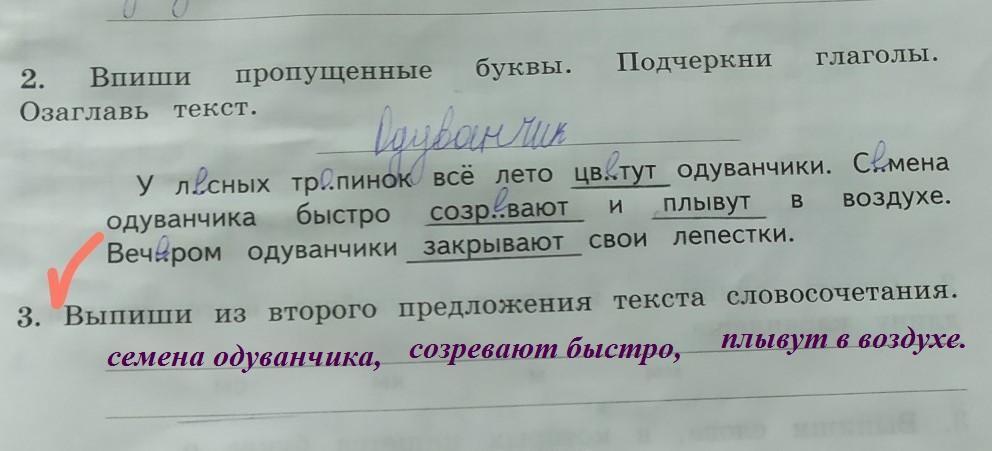 2. Впиши пропущенные буквы. Подчеркни глаголы.
Озаглавь текст.
Одуванчик
У лесных тропинок всё лето цветут одуванчики. Семена
одуванчика быстро созревают и плывут в воздухе.
Вечером одуванчики закрывают свои лепестки.
3. Выпиши из второго предложения текста словосочетания.
семена одуванчика, созревают быстро, плывут в воздухе.